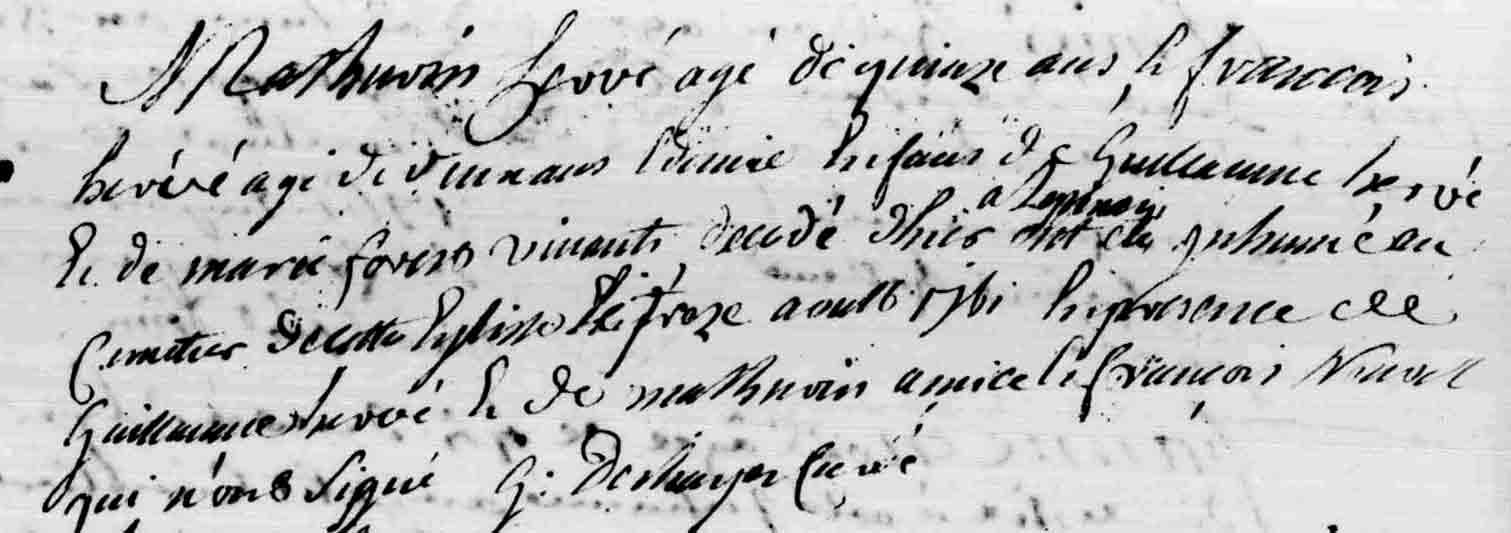 Mathurin hervé agé de quinze ans & francois
hervé agé de ans & demie enfans de Guillaume hervé
& de marie vivants decedé a hier ont eté inhumé au
Cemetier de cette Eglisse le treze aoust 1761 en presence de
Guillaume hervé & de mathurin amice & françois
qui n'ont signé G: Deshayes Curé